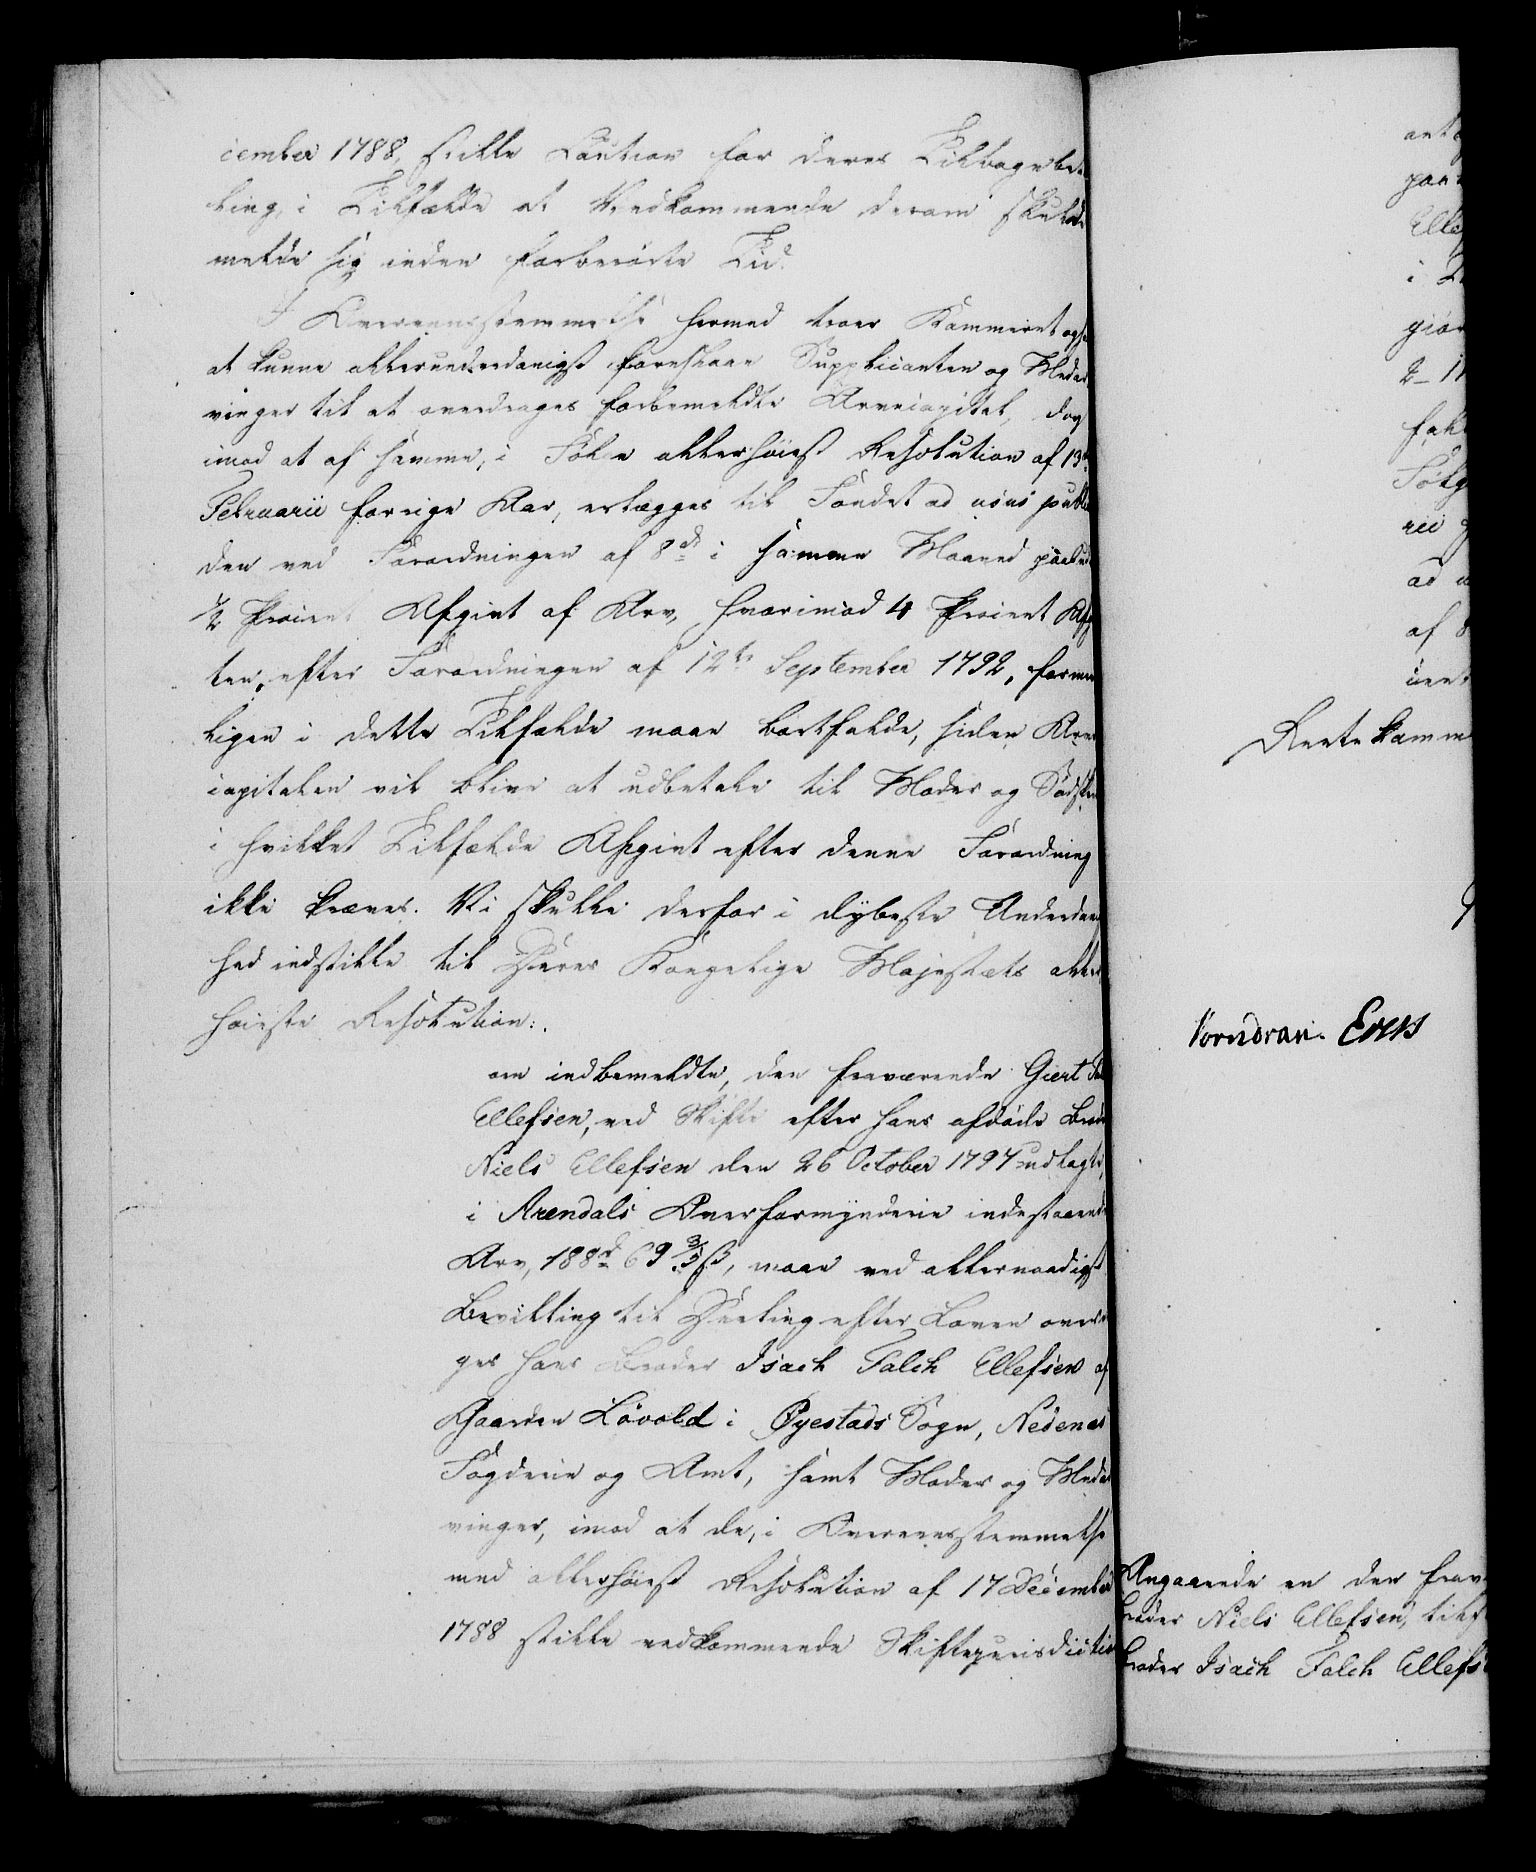 cember 1788, stille Caution for deres Tilbagebeta-
ling, i Tilfælde at Vedkommende derom skulde
melde sig inden forberørte Tid.
I Overeensstemmelse hermed troer Kammeret ogsaa
at kunne allerunderdanigst foreslaae Supplicanten og Medar-
vinger til at overdrages forbemeldte Arvecapital, dog
imod at af samme, i Følge allerhøiest Resolution af 13de
Februarii forrige Aar, erlægges til Fondet ad usus publicos
den ved Forordningen af 8de i samme Maaned paabudne
½ Procent Afgivt af Arv, hvorimod 4 Procent Afgiv-
ten, efter Forordningen af 12te September 1792, formeent-
ligen i dette Tilfælde maae bortfalde, siden Arve-
capitalen vil blive at udbetale til Moder og Sødskende
i hvilket Tilfælde Afgivt efter denne Forordning
ikke kræves. Vi skulle derfor i dybeste Underdanig-
hed indstille til Deres Kongelige Majestæts aller-
høieste Resolution:
om indbemeldte, den fraværende Giert
Ellefsen, ved Skifte efter hans afdøde Broder
Niels Ellefsen den 26 October 1797 udlagte,
i Arendals Overformynderie indestaaende
Arv, 188 rd 69 3/5 ß, maae ved allernaadigst
Bevilling til Deeling efter Loven overdra-
ges hans Broder Isach Falch Ellefsen af
Gaarden Løvold i Øyestads Sogn, Nedenæs
Fogderie og Amt, samt Moder og Medar-
vinger, imod at de, i Overeensstemmelse
med allerhøiest Resolution af 17 December
1788 stille vedkommende Skiftejurisdiction
paa
Elle
i
giør
2
Følg
rii
ad
af 8
cent
Rentekamm
Vorndran. Evers
Angaaende en den frav
broder Niels Ellefsen, tilf
broder Isach Falch Ellefs